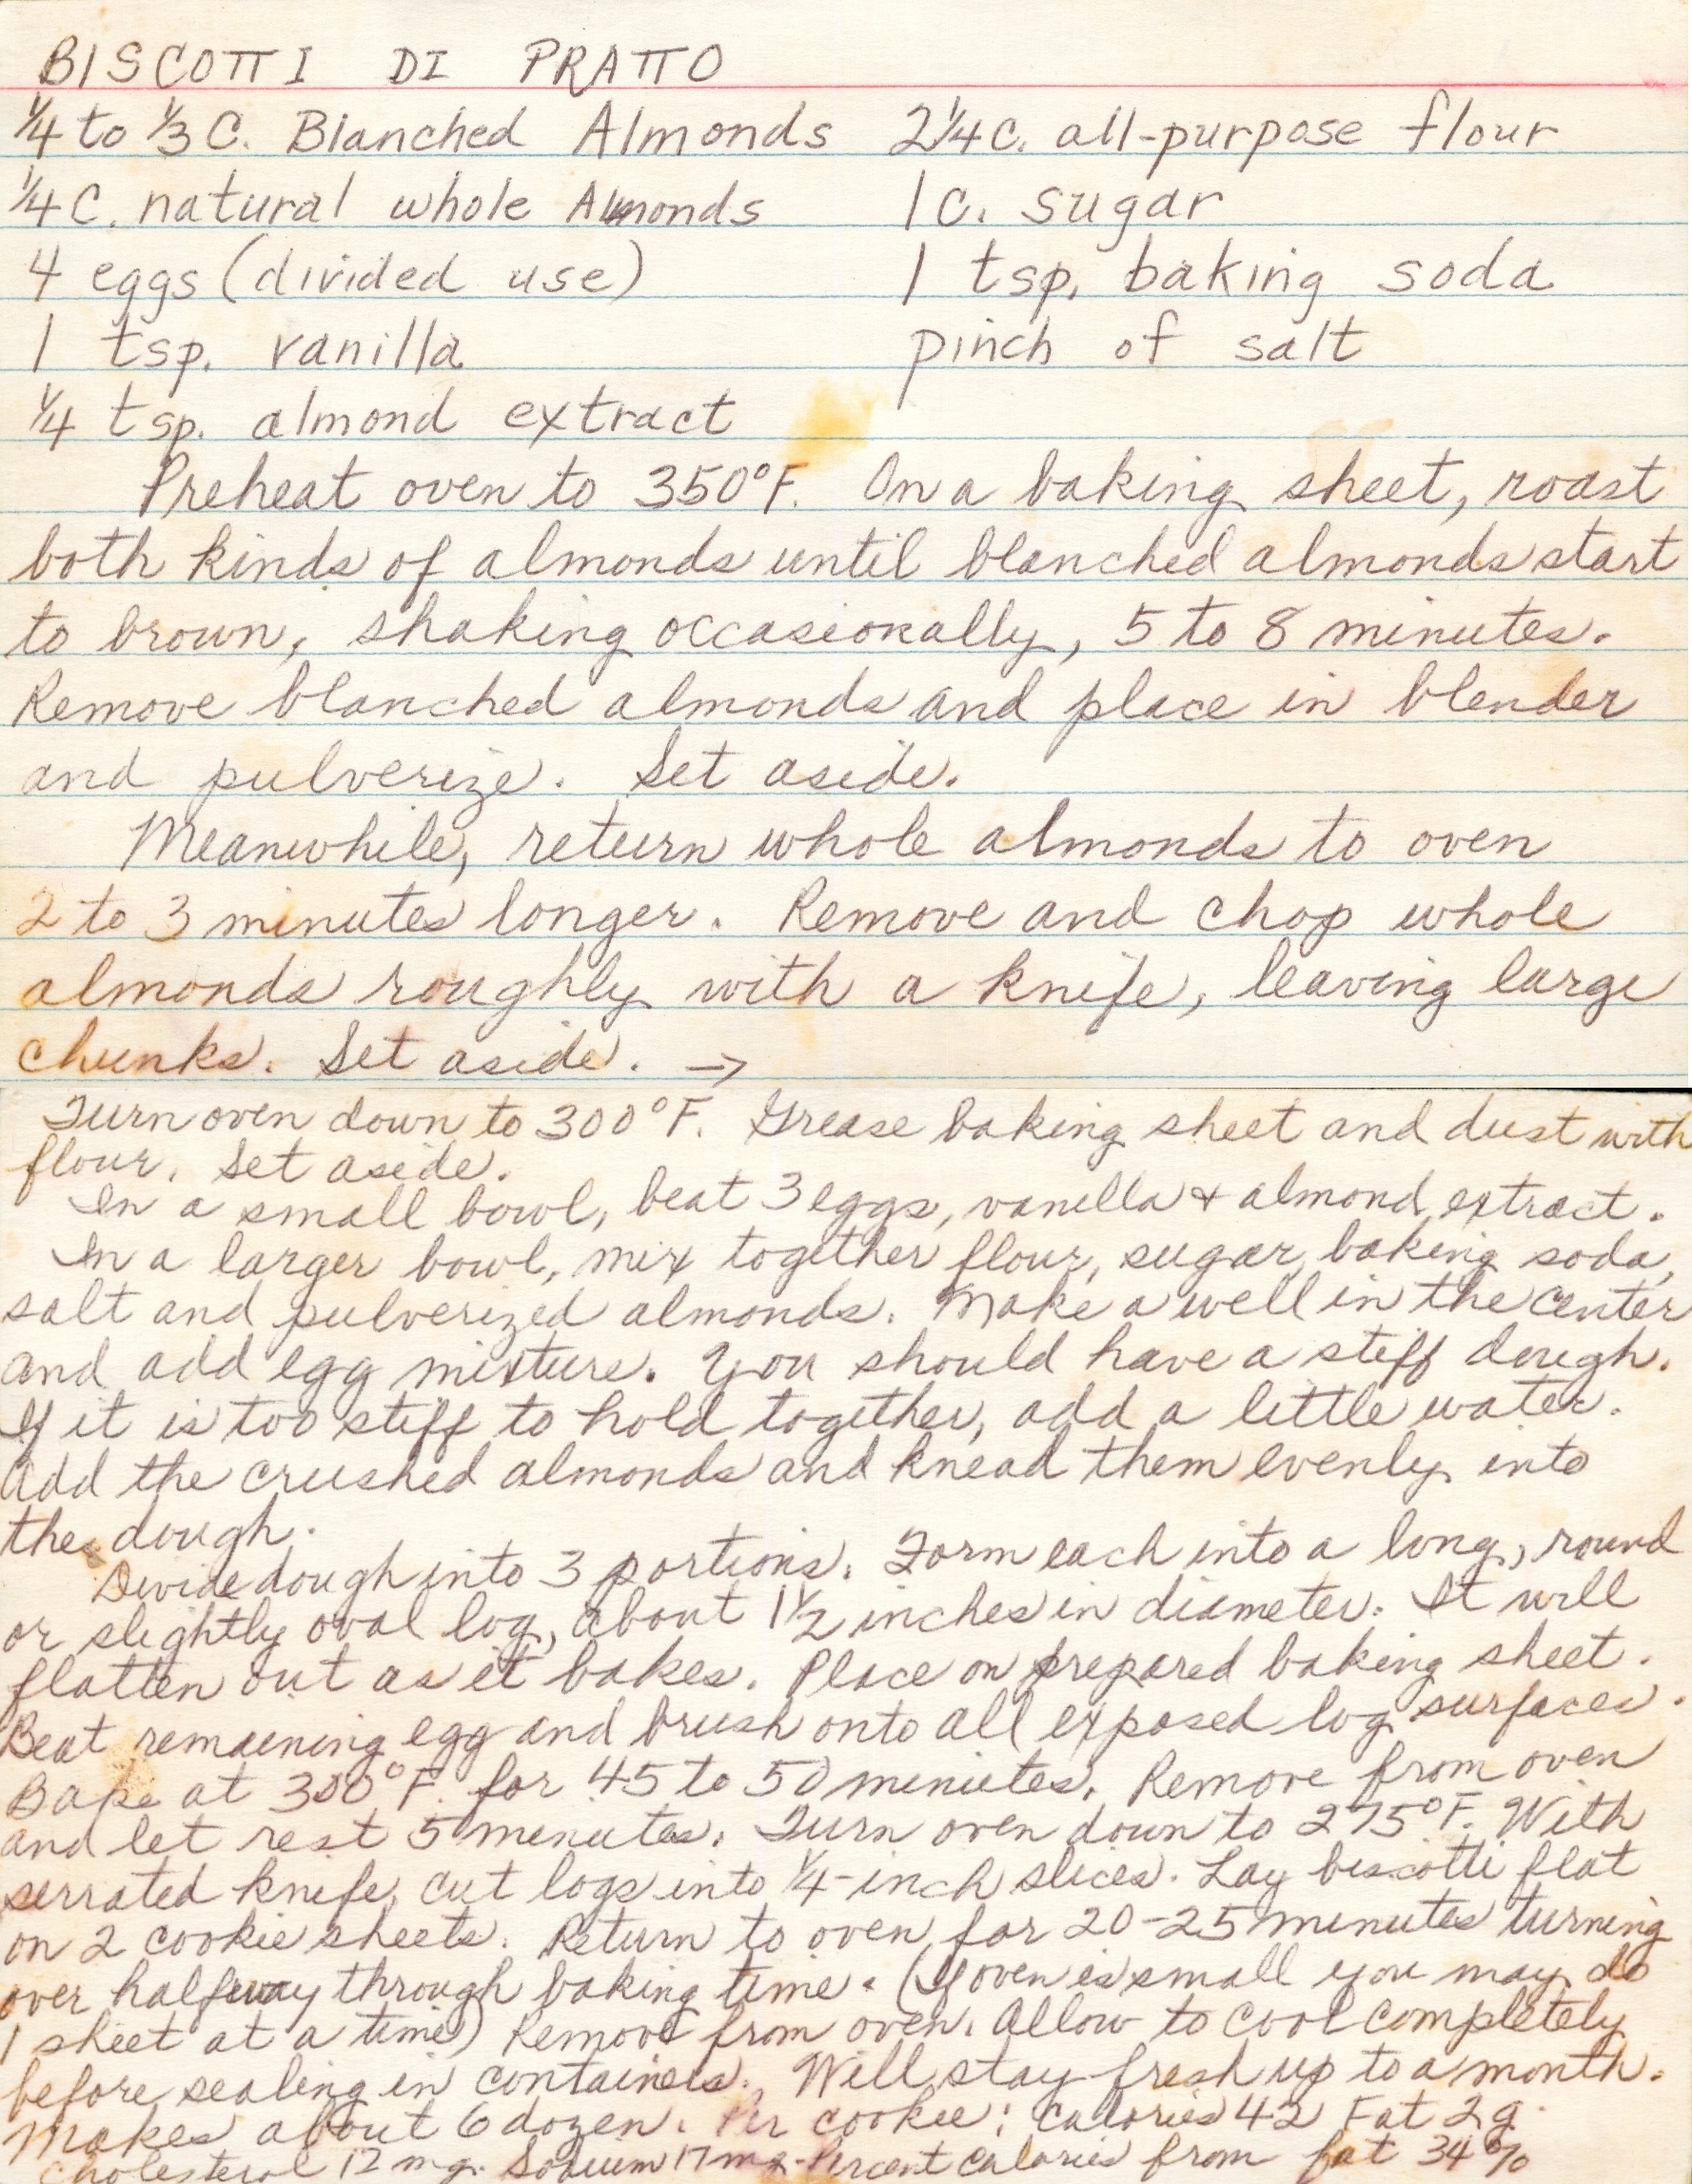 BISCOTTI DI PRATTO
1/4 to 1/3 C. Blanched Almonds 2 1/4 c. all-purpose flour
1/4 C. natural whole Almonds 1 c. sugar
4 eggs (divided use) 1 tsp. baking soda
1 tsp. vanilla pinch of salt
1/4 tsp. almond extract
Preheat oven to 350°F. On a baking sheet, roast
both kinds of almonds until blanched almonds start
to brown, shaking occasionally, 5 to 8 minutes.
Remove blanched almonds and place in blender
and pulverize. Set aside.
Meanwhile, return whole almonds to oven
2 to 3 minutes longer. Remove and chop whole
almonds roughly with a knife, leaving large
chunks. Set aside. →
Turn oven down to 300°F. Grease baking sheet and dust with
flour. Set aside.
In a small bowl, beat 3 eggs, vanilla & almond extract.
In a larger bowl, mix together flour, sugar, baking soda,
salt and pulverized almonds. Make a well in the center
and add egg mixture. You should have a stiff dough.
If it is too stiff to hold together, add a little water.
Add the crushed almonds and knead them evenly into
the dough.
Divide dough into 3 portions. Form each into a long, round
or slightly oval log, about 1 1/2 inches in diameter. It will
flatten out as it bakes. Place on prepared baking sheet.
Beat remaining egg and brush onto all exposed log surfaces.
Bake at 300°F. for 45 to 50 minutes. Remove from oven
and let rest 5 minutes. Turn oven down to 275°F. With
serrated knife, cut logs into 1/4-inch slices. Lay biscotti flat
on 2 cookie sheets. Return to oven for 20-25 minutes turning
over halfway through baking time. (If oven is small you may do
1 sheet at a time) Remove from oven. Allow to cool completely
before sealing in containers. Will stay fresh up to a month.
Makes about 6 dozen. Per cookie: Calories 42 Fat 2g.
Cholesterol 12 mg. Sodium 17 mg. Percent calories from fat 34%